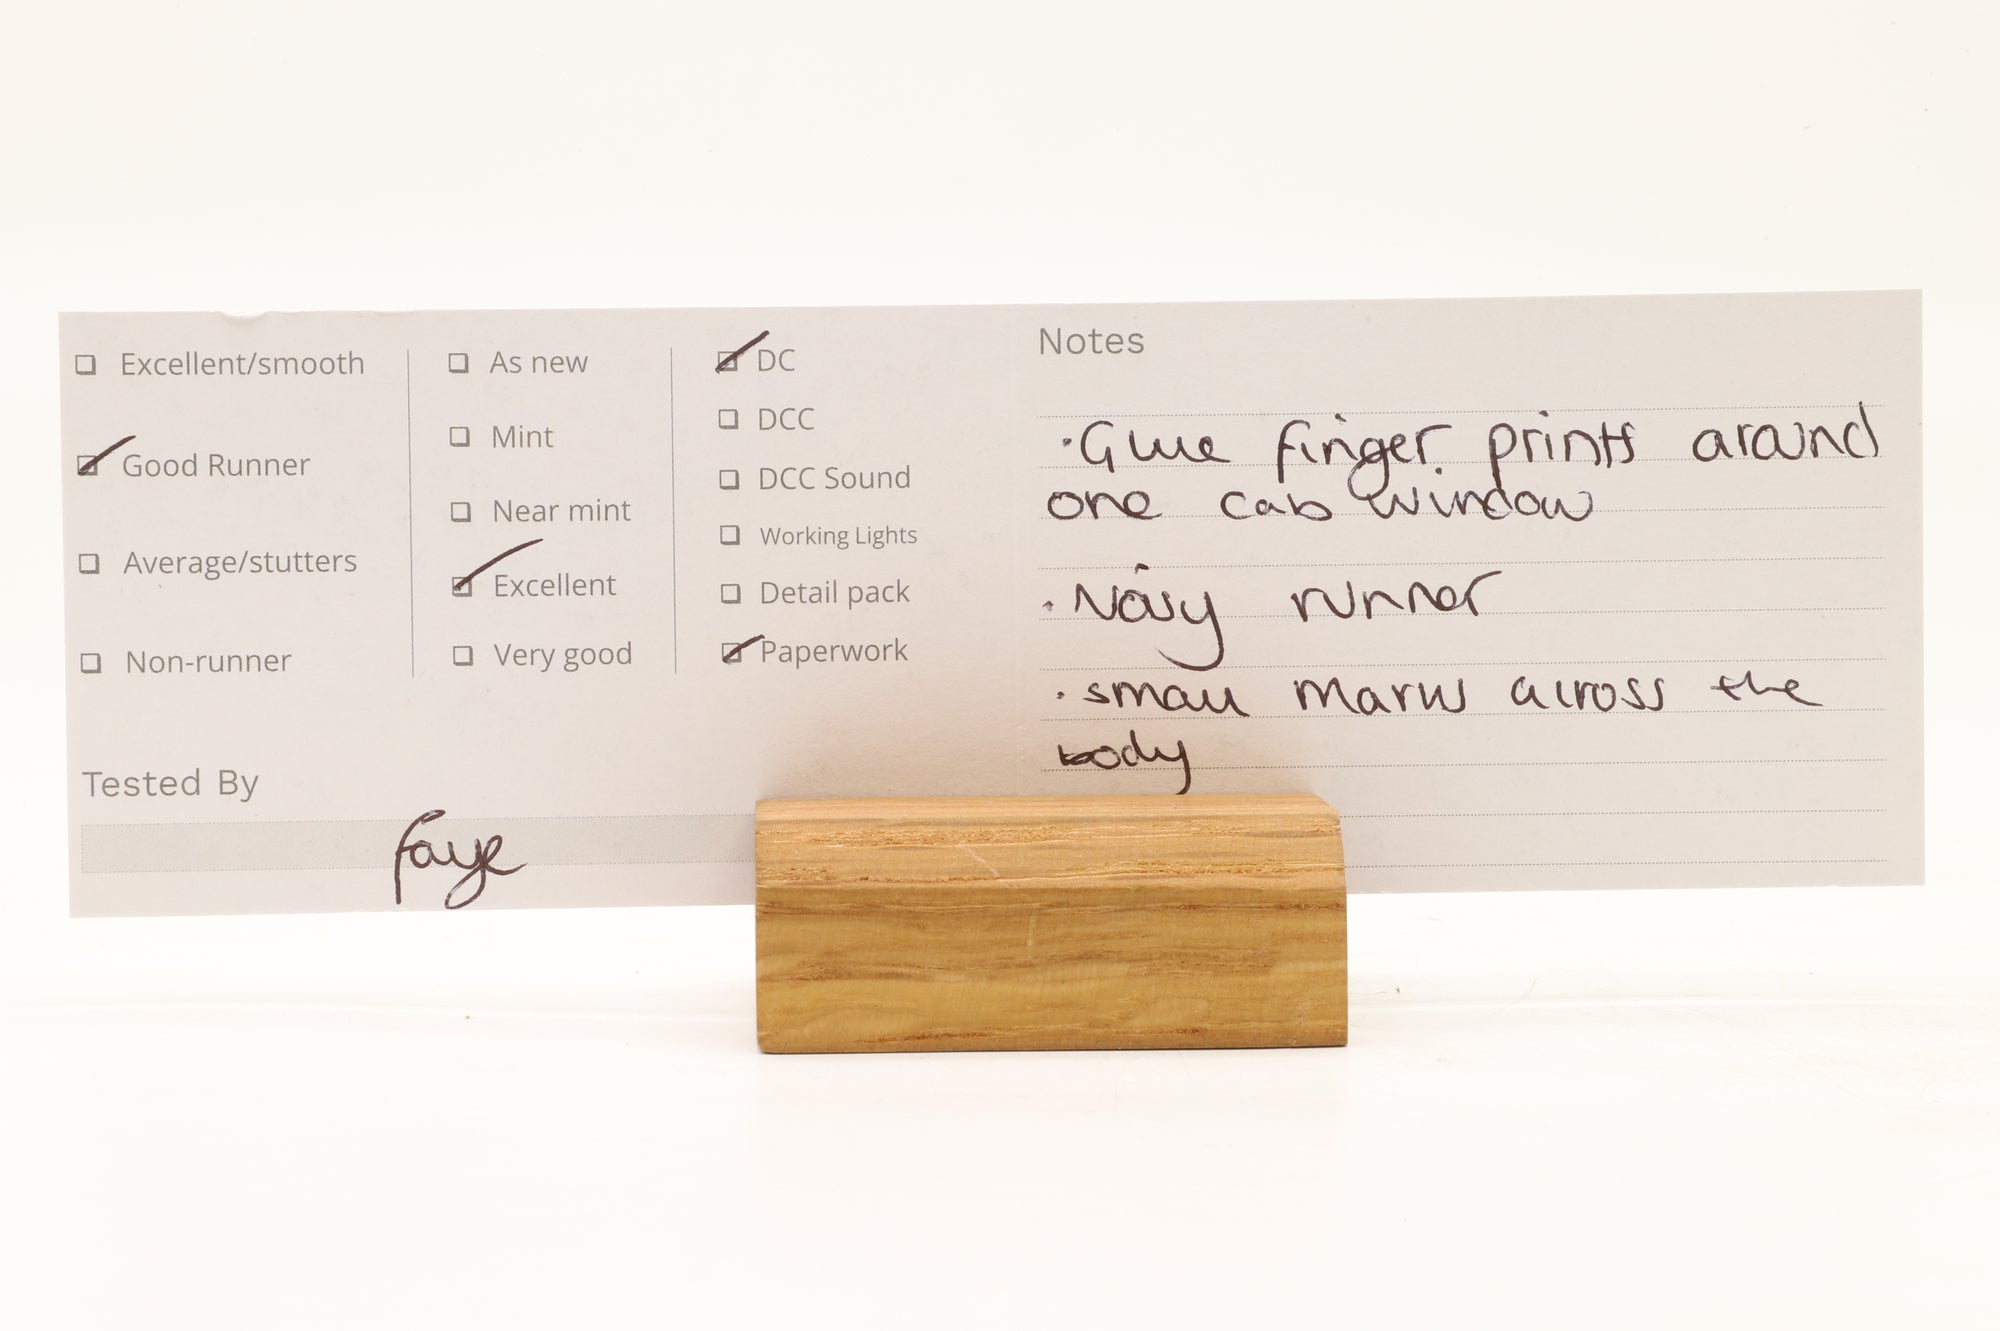 Excellent/smooth
Good Runner
Average/stutters
Non-runner
As new
Mint
Near mint
Excellent
Very good
DC
DCC
DCC Sound
Working Lights
Detail pack
Paperwork
Tested By
faye
Notes
·Glue finger prints around
one cab window
·Noisy runner
·small marks across the
body